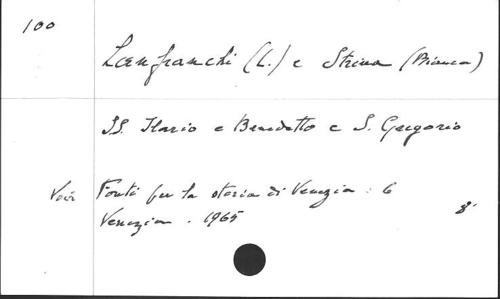 100
Lanfranchi (L.) e Strina (Bianca)
SS. Ilario e Benedetto e S. Gregorio
Voir Fonti per la storia di Venezia : 6
Venezia . 1965 8°